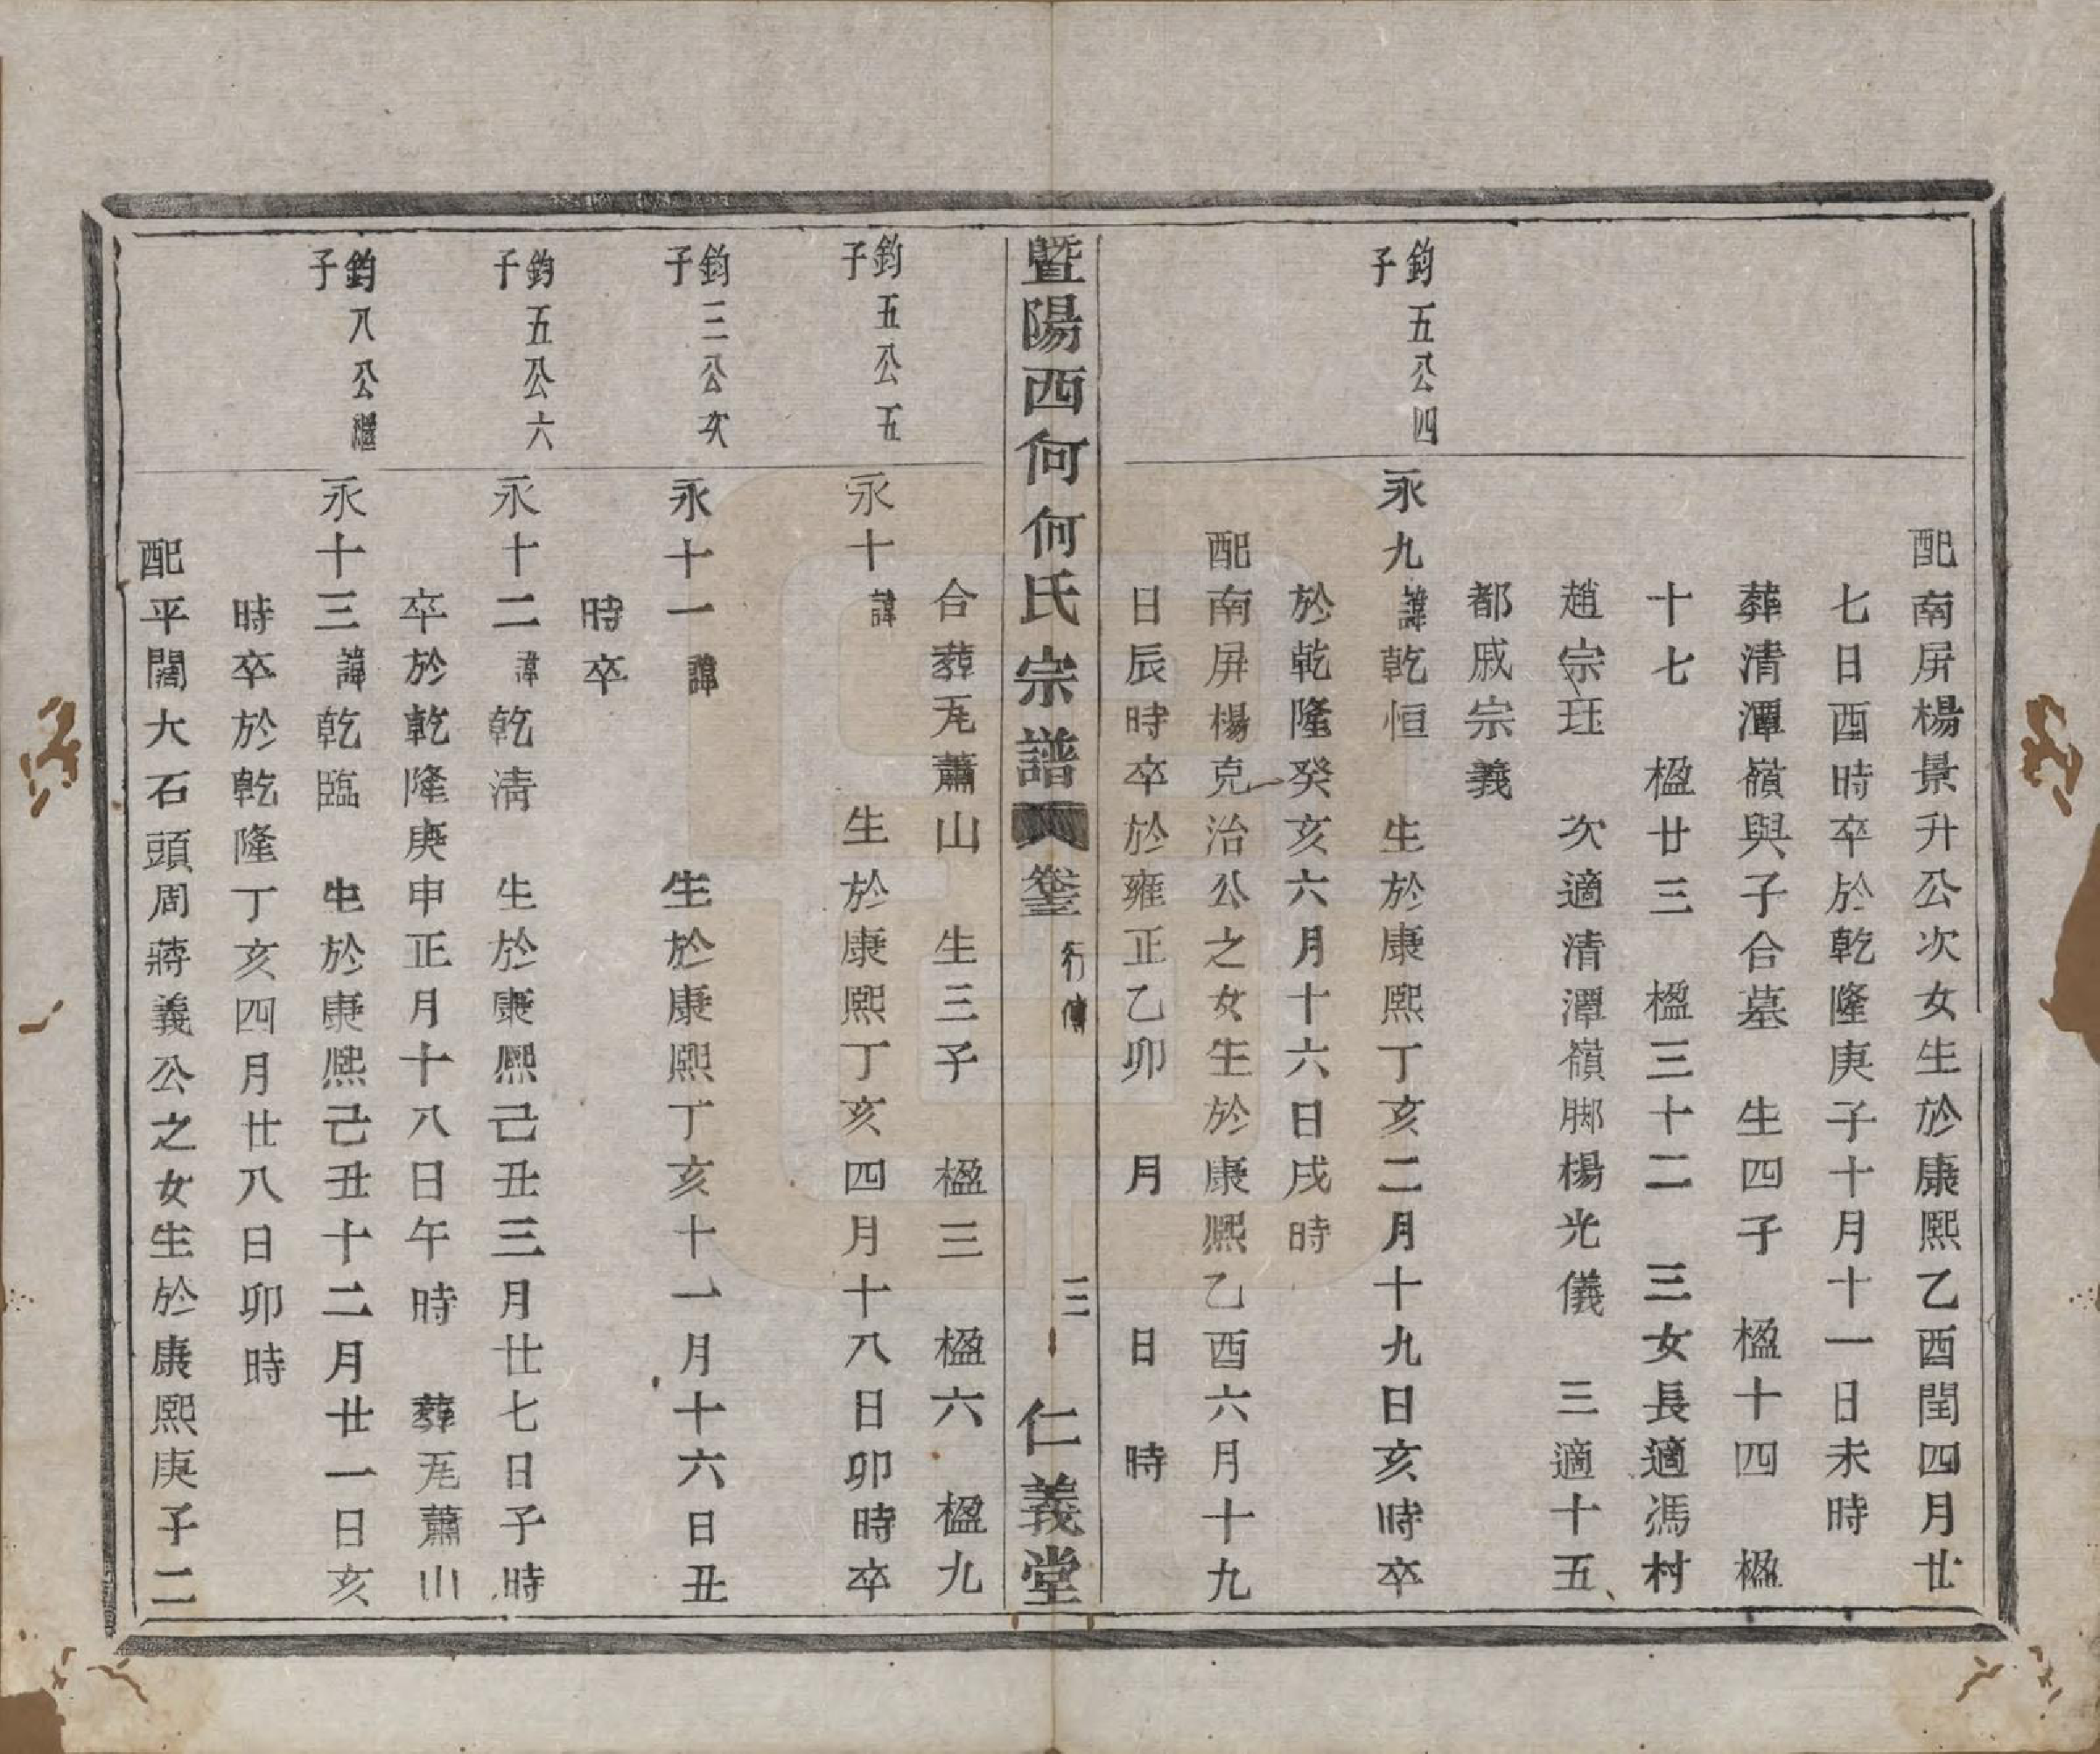 配南屏楊景升公次女生於康熙乙酉閏四月廿
七日酉時卒於乾隆庚子十月十一日未時
葬清潭嶺與子合墓 生四子 楹十四 楹
十七 楹廿三 楹三十二 三女長適馮村
趙宗珏 次適清潭嶺脚楊光儀 三適十五
都戚宗義
鈞五公四子
永九諱乾恒 生於康熙丁亥二月十九日亥時卒
於乾隆癸亥六月十六日戌時
配南屏楊克治公之女生於康熙乙酉六月十九
日辰時卒於雍正乙卯 月 日 時
暨陽西何何氏宗譜 卷 行傳 三 仁義堂
合葬廡蕭山 生三子 楹三 楹六 楹九
鈞五公五子
永十諱 生於康熙丁亥四月十八日卯時卒
鈞三公次子
永十一諱 生於康熙丁亥十一月十六日丑
時卒
鈞五公六子
永十二諱乾清 生於康熙己丑三月廿七日子時
卒於乾隆庚申正月十八日午時 葬蕭山
鈞八公繼子
永十三諱乾臨 生於康熙己丑十二月廿一日亥
時卒於乾隆丁亥四月廿八日卯時
配平闊大石頭周蔣義公之女生於康熙庚子二